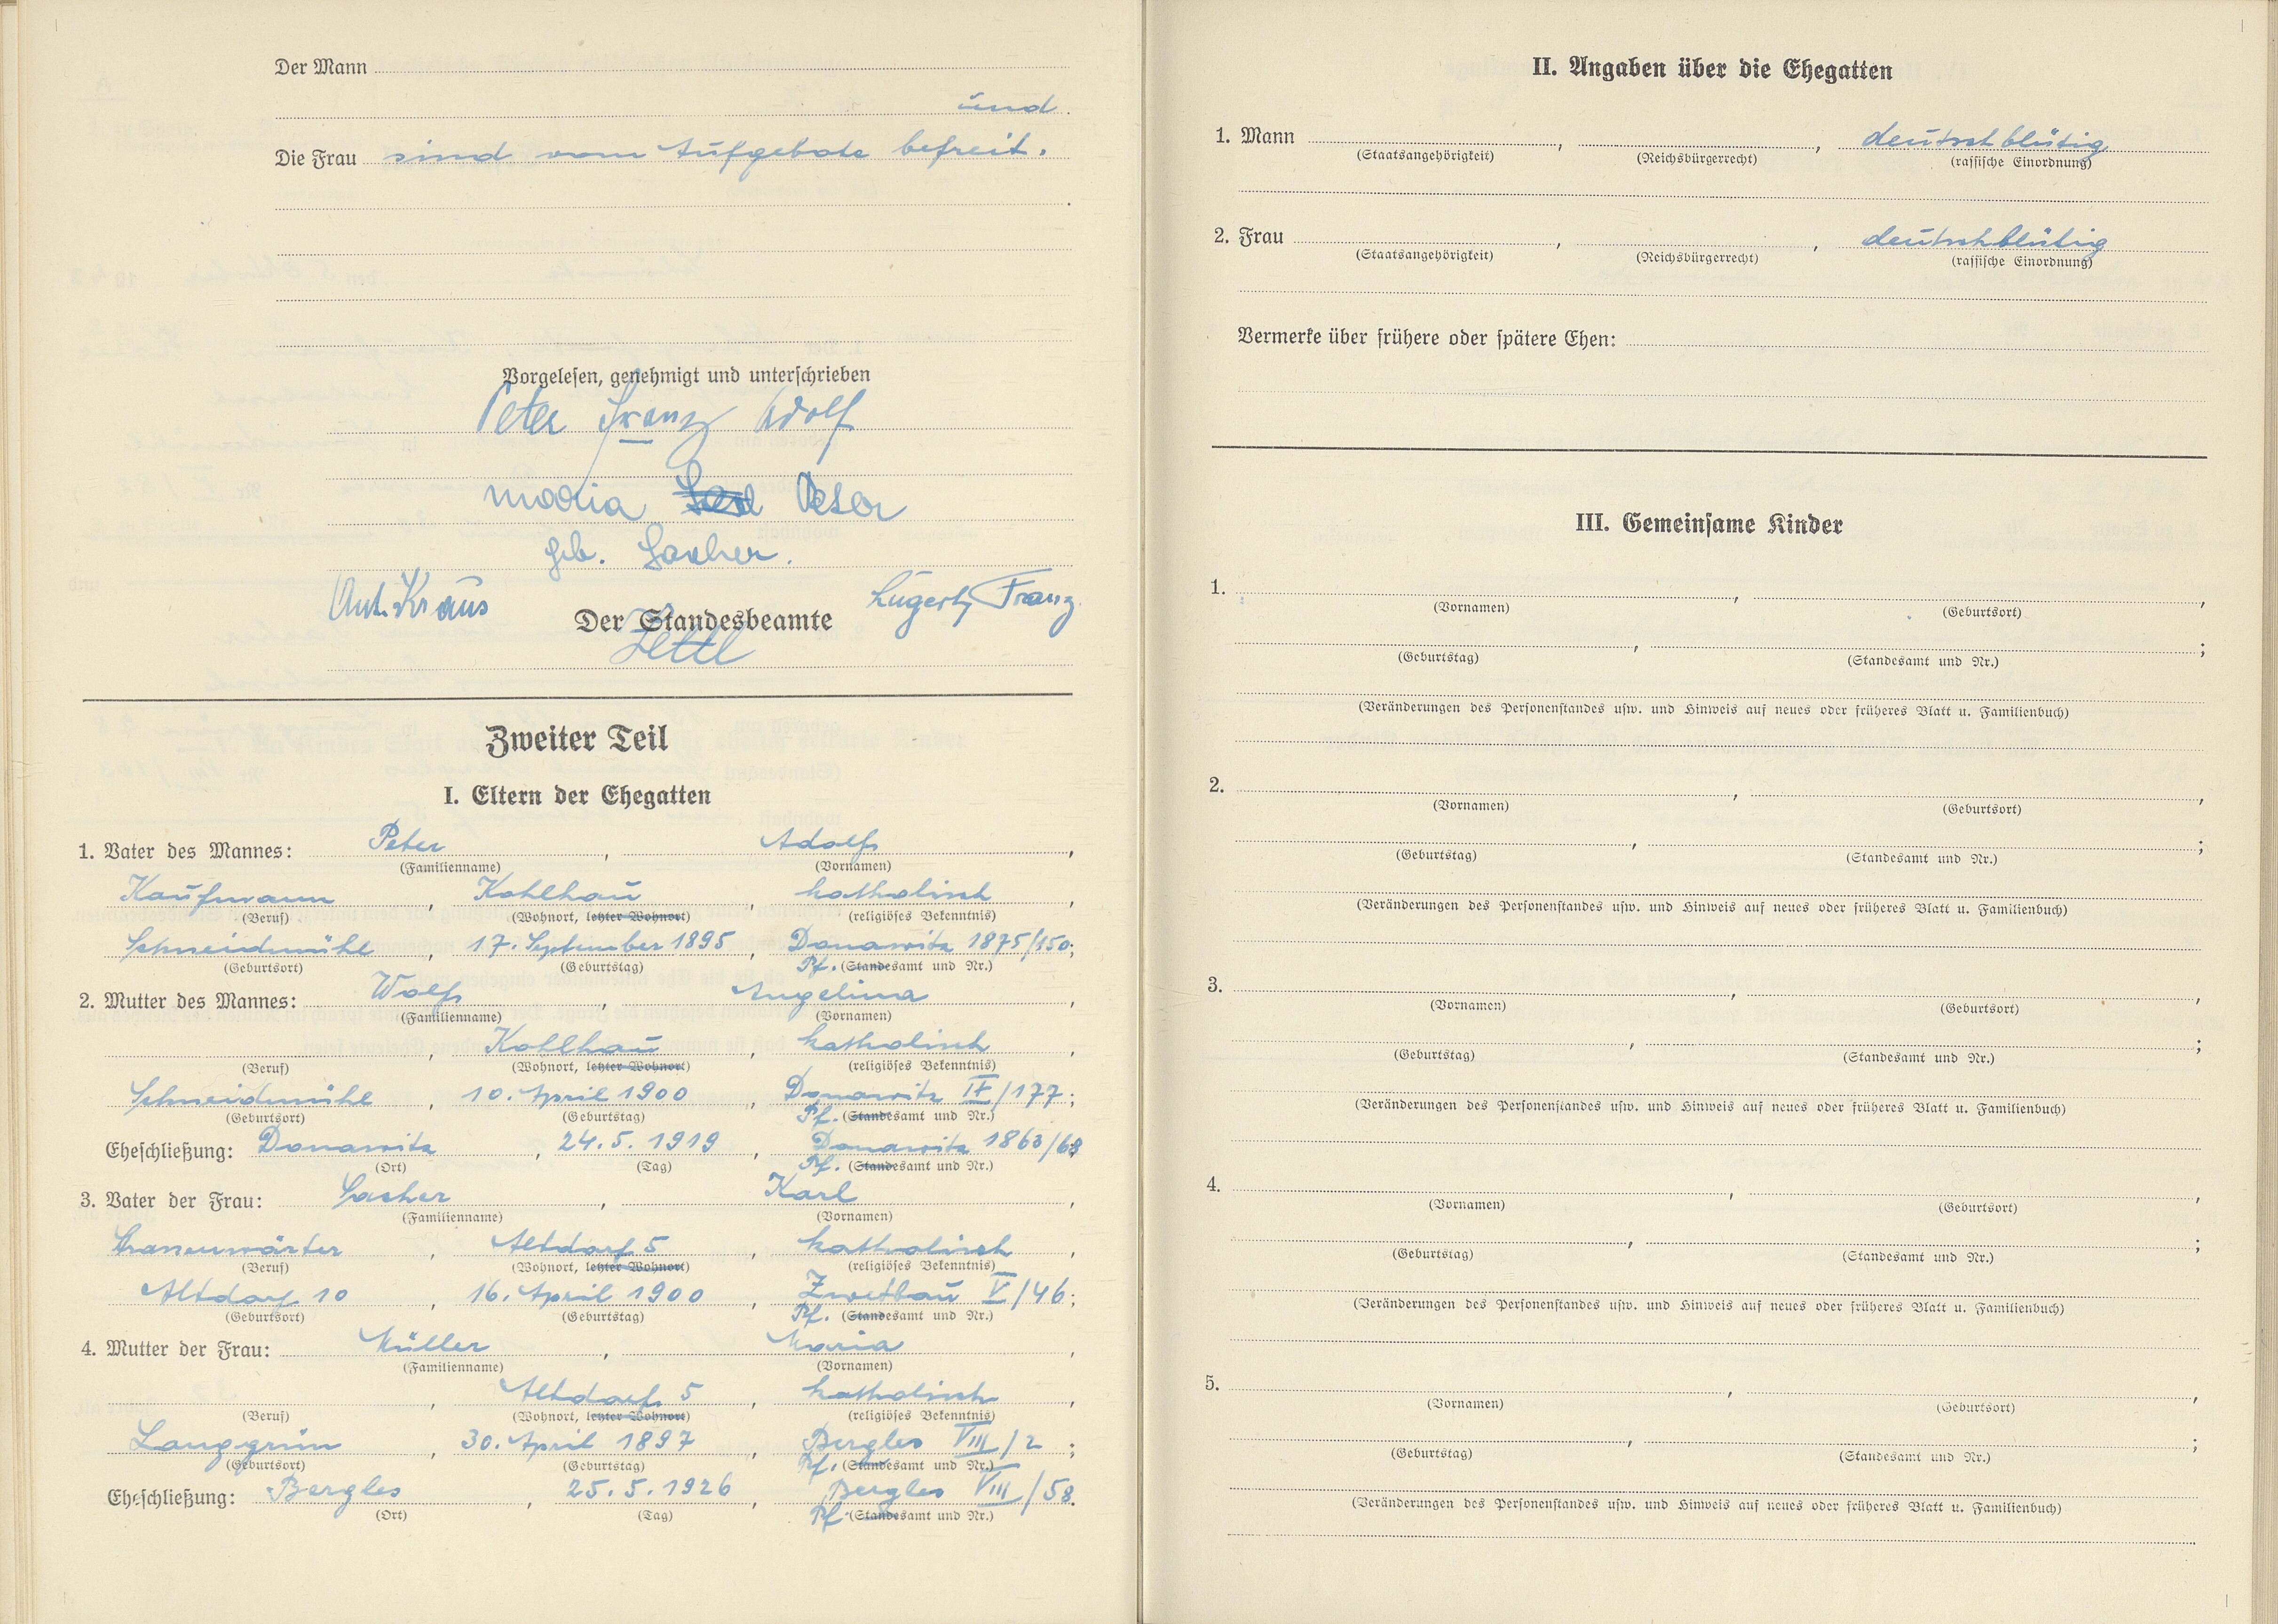 Der Mann
und
Die Frau sind vom Aufgebote befreit.
Vorgelesen, genehmigt und unterschrieben
Peter Franz Adolf
Maria Peter
geb. Sacher.
Ant. Kraus Franz
Der Standesbeamte
Zettl
Zweiter Teil
I. Eltern der Ehegatten
1. Vater des Mannes: Peter, Adolf,
(Familienname) (Vornamen)
Kaufmann, Kohlhau, katholisch,
(Beruf) (Wohnort, letzter Wohnort) (religiöses Bekenntnis)
Schneidmühl, 17. September 1895, Donawitz 1875/150;
(Geburtsort) (Geburtstag) Pf. (Standesamt und Nr.)
2. Mutter des Mannes: Wolf, Angelina,
(Familienname) (Vornamen)
, Kohlhau, katholisch,
(Beruf) (Wohnort, letzter Wohnort) (religiöses Bekenntnis)
Schneidmühl, 10. April 1900, Donawitz IX/177;
(Geburtsort) (Geburtstag) Pf. (Standesamt und Nr.)
Eheschließung: Donawitz, 24.5.1919, Donawitz 1863/68
(Ort) (Tag) Pf. (Standesamt und Nr.)
3. Vater der Frau: Sacher, Karl,
(Familienname) (Vornamen)
Kranenwärter, Altdorf 5, katholisch,
(Beruf) (Wohnort, letzter Wohnort) (religiöses Bekenntnis)
Altdorf 10, 16. April 1900, Zwetbau V/46;
(Geburtsort) (Geburtstag) Pf. (Standesamt und Nr.)
4. Mutter der Frau: Müller, Maria,
(Familienname) (Vornamen)
, Altdorf 5, katholisch,
(Beruf) (Wohnort, letzter Wohnort) (religiöses Bekenntnis)
Langgrün, 30. April 1897, Bergles VIII/2;
(Geburtsort) (Geburtstag) Pf. (Standesamt und Nr.)
Eheschließung: Bergles, 25.5.1926, Bergles VIII/58.
(Ort) (Tag) Pf. (Standesamt und Nr.)
II. Angaben über die Ehegatten
1. Mann , , deutschblütig
(Staatsangehörigkeit) (Reichsbürgerrecht) (rassische Einordnung)
2. Frau , , deutschblütig
(Staatsangehörigkeit) (Reichsbürgerrecht) (rassische Einordnung)
Vermerke über frühere oder spätere Ehen:
III. Gemeinsame Kinder
1. , ,
(Vornamen) (Geburtsort)
, ;
(Geburtstag) (Standesamt und Nr.)
(Veränderungen des Personenstandes usw. und Hinweis auf neues oder früheres Blatt u. Familienbuch)
2. , ,
(Vornamen) (Geburtsort)
, ;
(Geburtstag) (Standesamt und Nr.)
(Veränderungen des Personenstandes usw. und Hinweis auf neues oder früheres Blatt u. Familienbuch)
3. , ,
(Vornamen) (Geburtsort)
, ;
(Geburtstag) (Standesamt und Nr.)
(Veränderungen des Personenstandes usw. und Hinweis auf neues oder früheres Blatt u. Familienbuch)
4. , ,
(Vornamen) (Geburtsort)
, ;
(Geburtstag) (Standesamt und Nr.)
(Veränderungen des Personenstandes usw. und Hinweis auf neues oder früheres Blatt u. Familienbuch)
5. , ,
(Vornamen) (Geburtsort)
, ;
(Geburtstag) (Standesamt und Nr.)
(Veränderungen des Personenstandes usw. und Hinweis auf neues oder früheres Blatt u. Familienbuch)